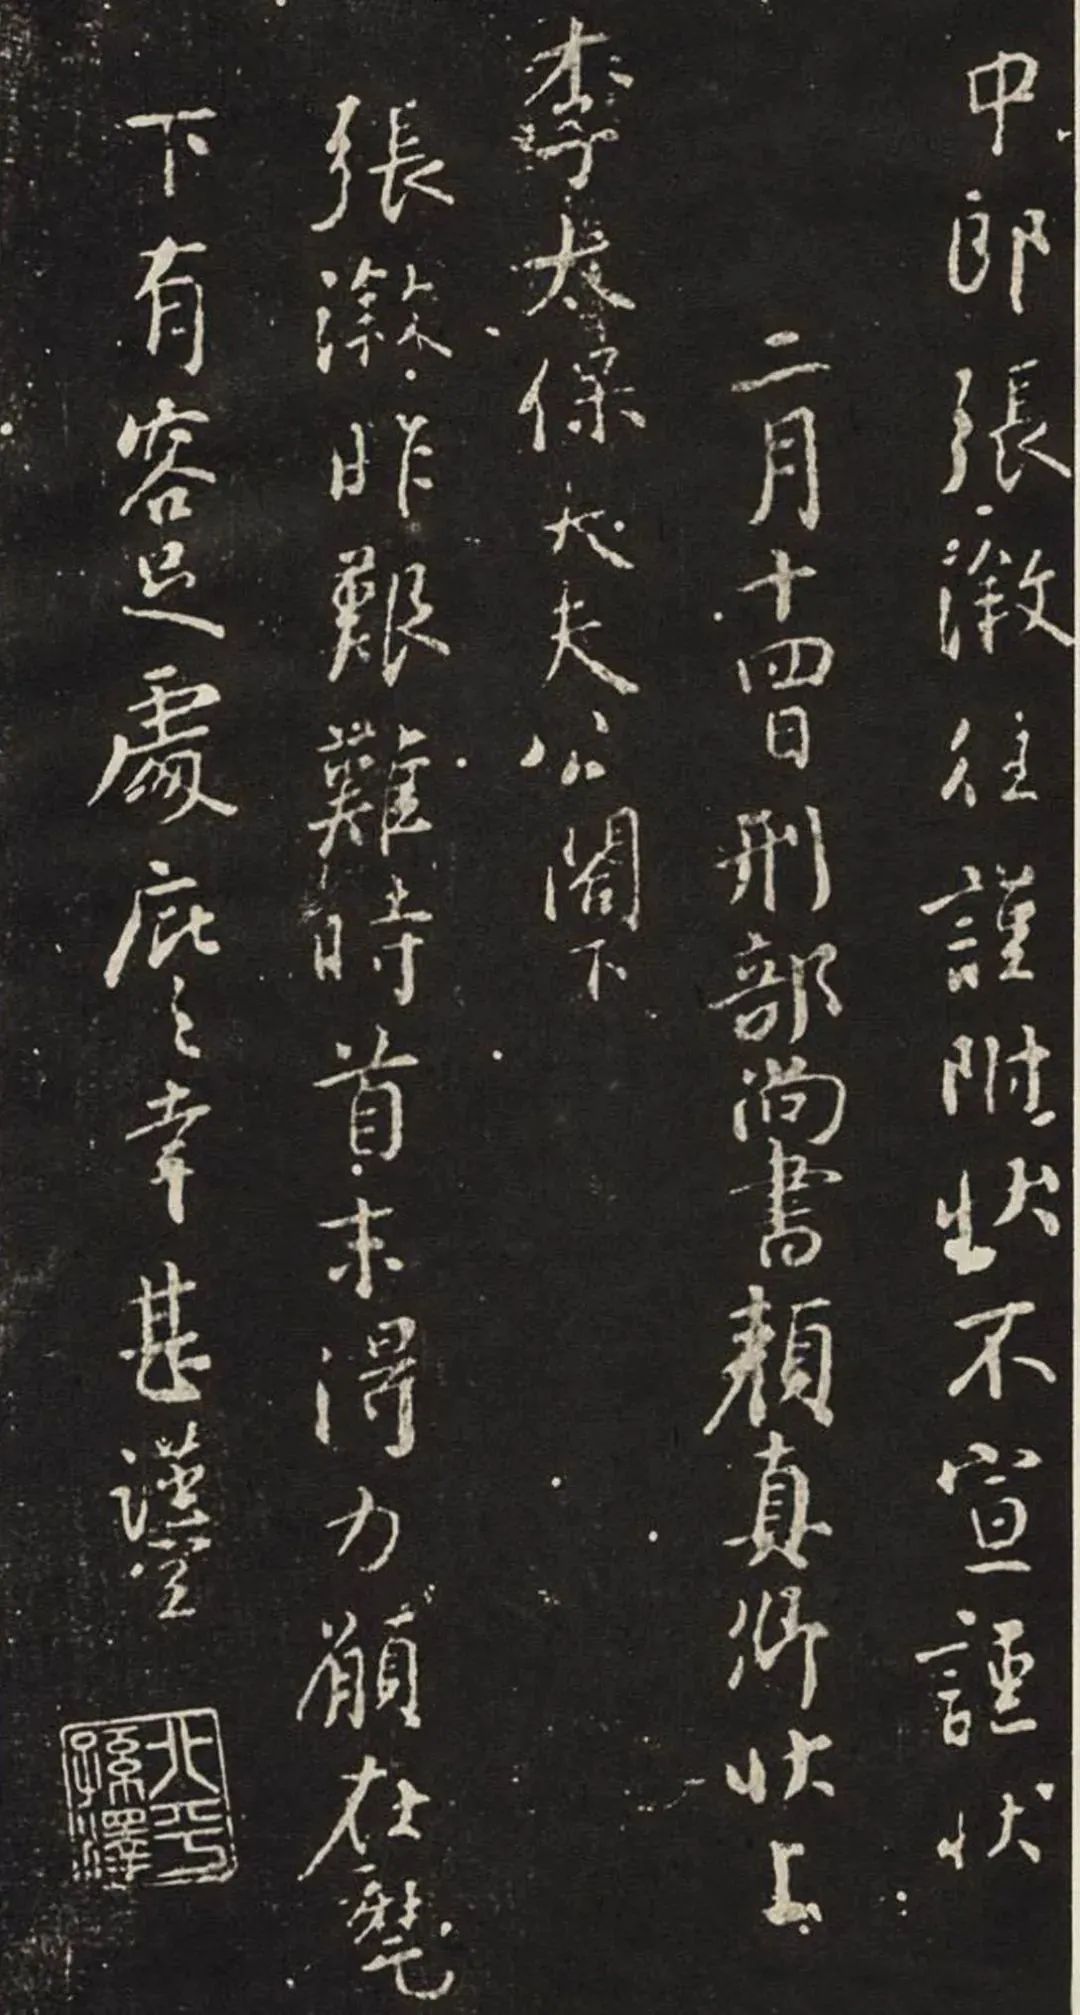 中郎張溦往謹附狀不宣謹狀
二月十四日刑部尚書顏真卿狀上
李太保大夫公閤下
張溦昨艱難時首末得力願在麾
下有容足處庇之幸甚謹空
北平
孫澤